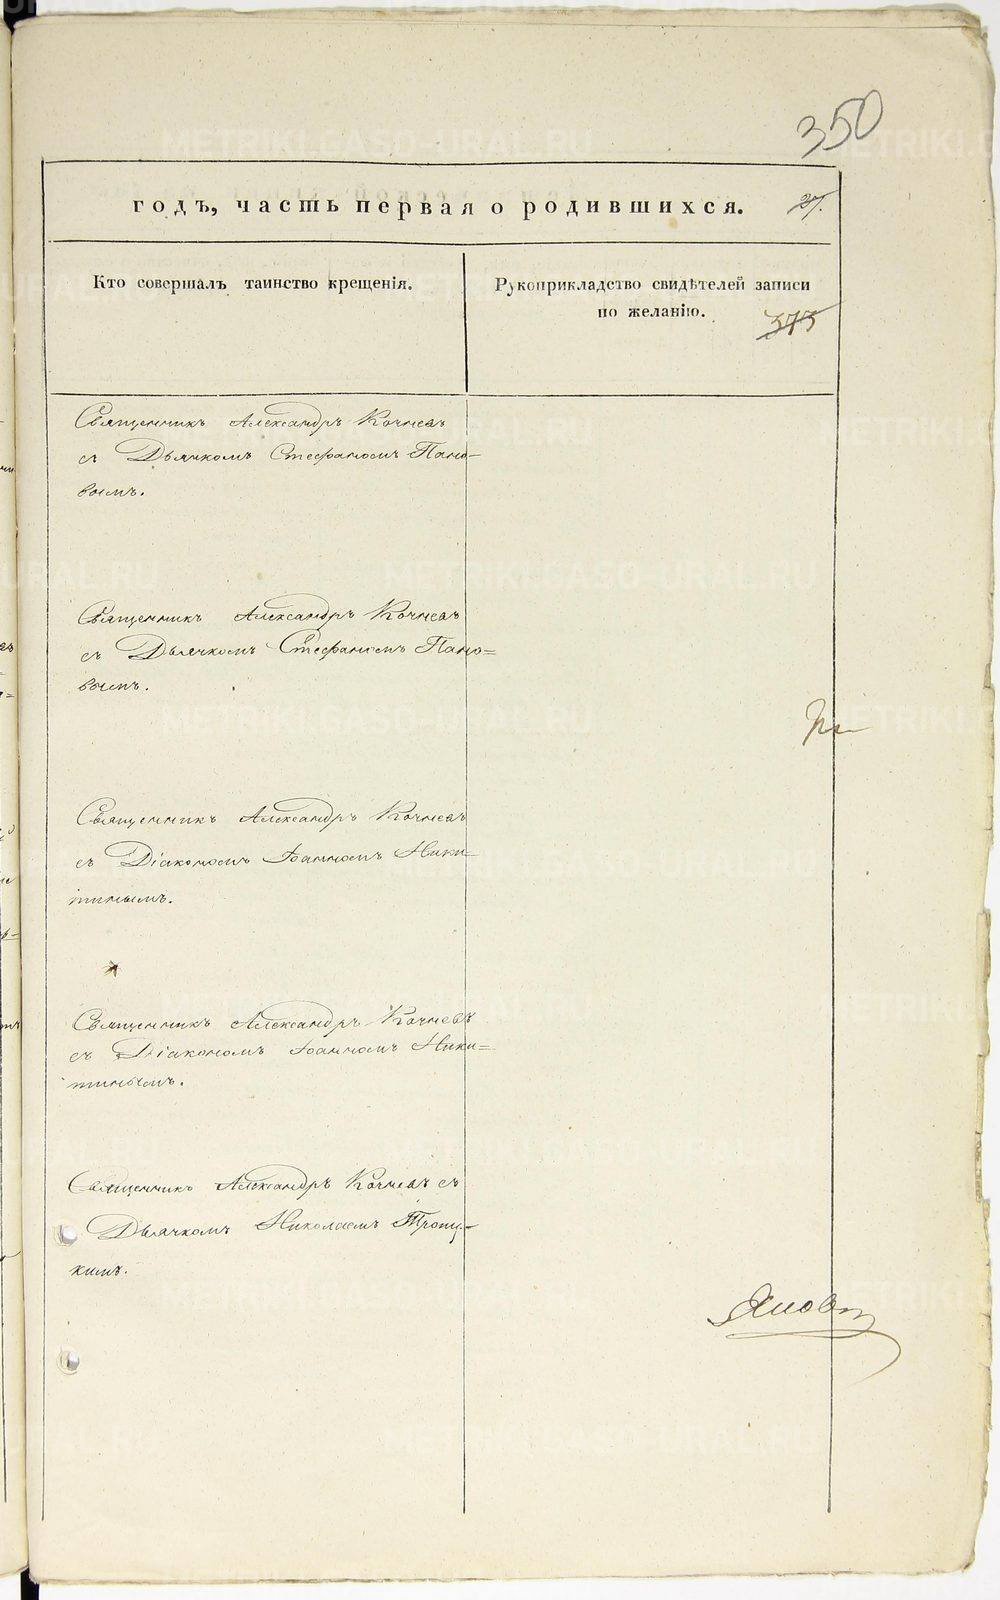 350
годъ, часть первая о родившихся. 27.
Кто совершалъ таинство крещенія.
Рукоприкладство свидѣтелей записи
по желанію. 373
Священникъ Александръ Кочневъ
съ Дьячкомъ Стефаномъ Пано-
вымъ.
Священникъ Александръ Кочневъ
съ Дьячкомъ Стефаномъ Пано=
вымъ.
Священникъ Александръ Кочневъ
съ Діакономъ Іоанномъ Ники-
тинымъ.
Священникъ Александръ Кочневъ
съ Діакономъ Іоанномъ Ники=
тинымъ.
Священникъ Александръ Кочневъ съ
Дьячкомъ Николаемъ Троиц-
кимъ.
METRIKI.GASO-URAL.RU